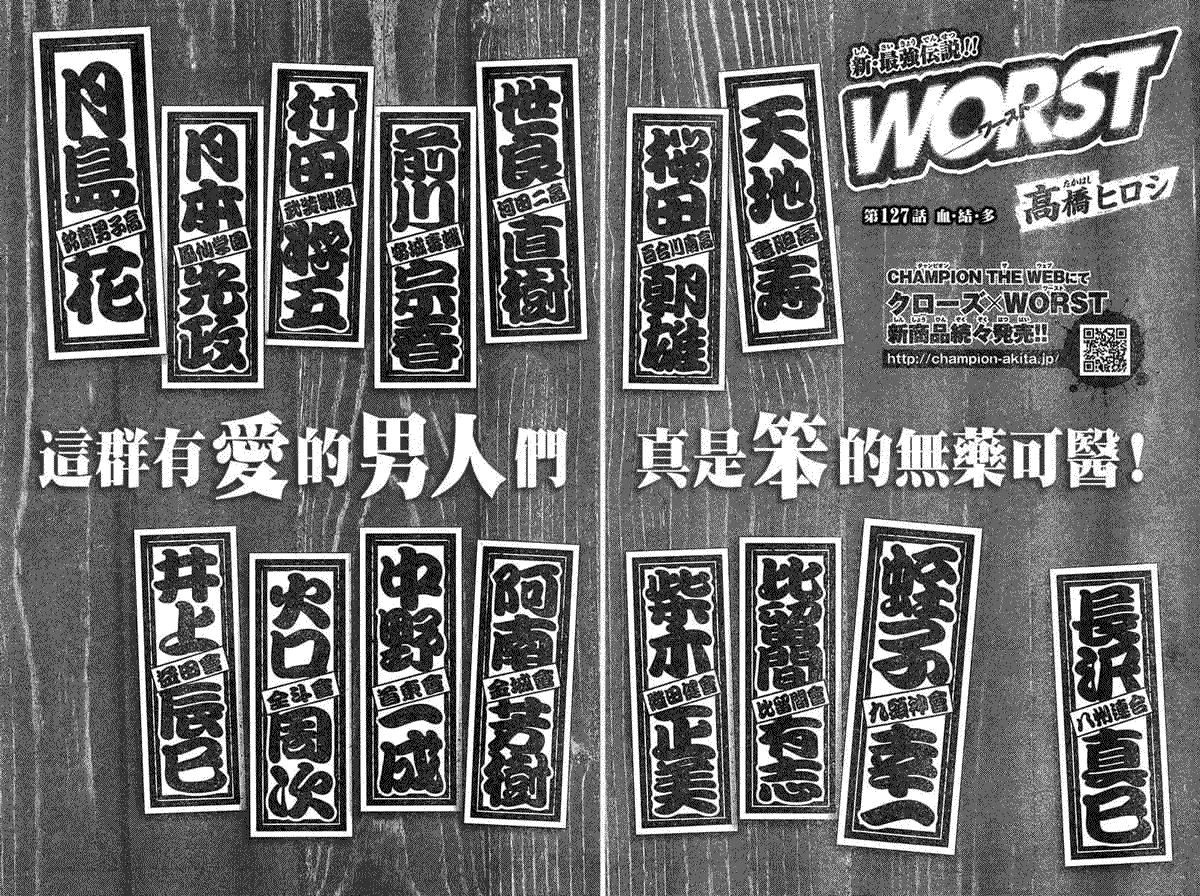 新・最強伝説!!
WORST
ワースト
高橋ヒロシ
たかはし
第127話 血・結・多
CHAMPION THE WEBにて
クローズ×WORST
新商品続々発売!!
http://champion-akita.jp/
天地寿
竜胆高
桜田朝雄
百合川南高
世良直樹
河田二高
前川宗春
村田将五
武装戦線
月本光政
鳳仙学園
月島花
鈴蘭男子高
真是笨的無藥可醫!
這群有愛的男人們
長沢真巳
八州連合
蛭子幸一
九頭神會
比留間有志
比留間會
柴木正美
勝田健會
阿南芳樹
金城會
中野一成
首東會
火口周次
全斗會
井上辰巳